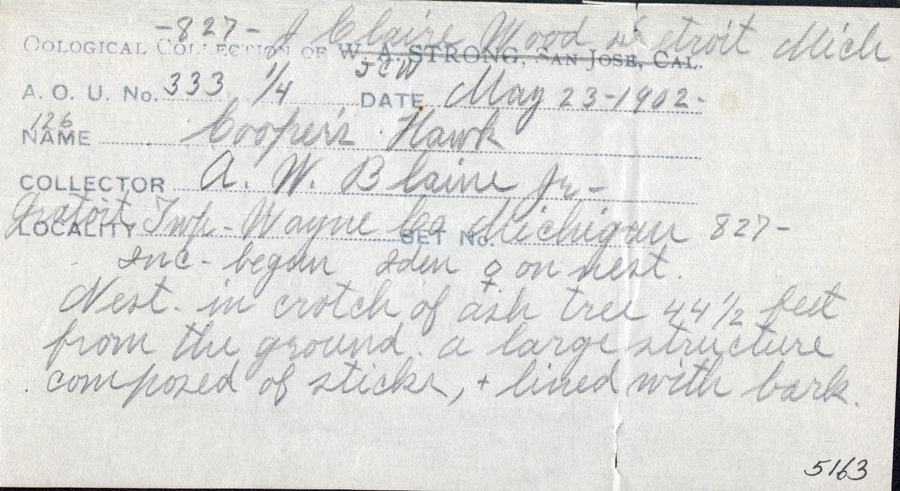 -827- J Claire Wood Detroit Mich
OOLOGICAL COLLECTION OF W. A. STRONG, SAN JOSE, CAL.
JCW
A. O. U. No. 333 1/4 DATE May 23-1902-
126
NAME Cooper's Hawk
COLLECTOR A. W. Blaine Jr-
LOCALITY Gratoit Twp- Wayne Co Michigan SET No. 827-
Inc- begun Iden ♀ on nest.
Nest. in crotch of ash tree 44 1/2 feet
from the ground. a large structure
composed of sticks, + lined with bark.
5163